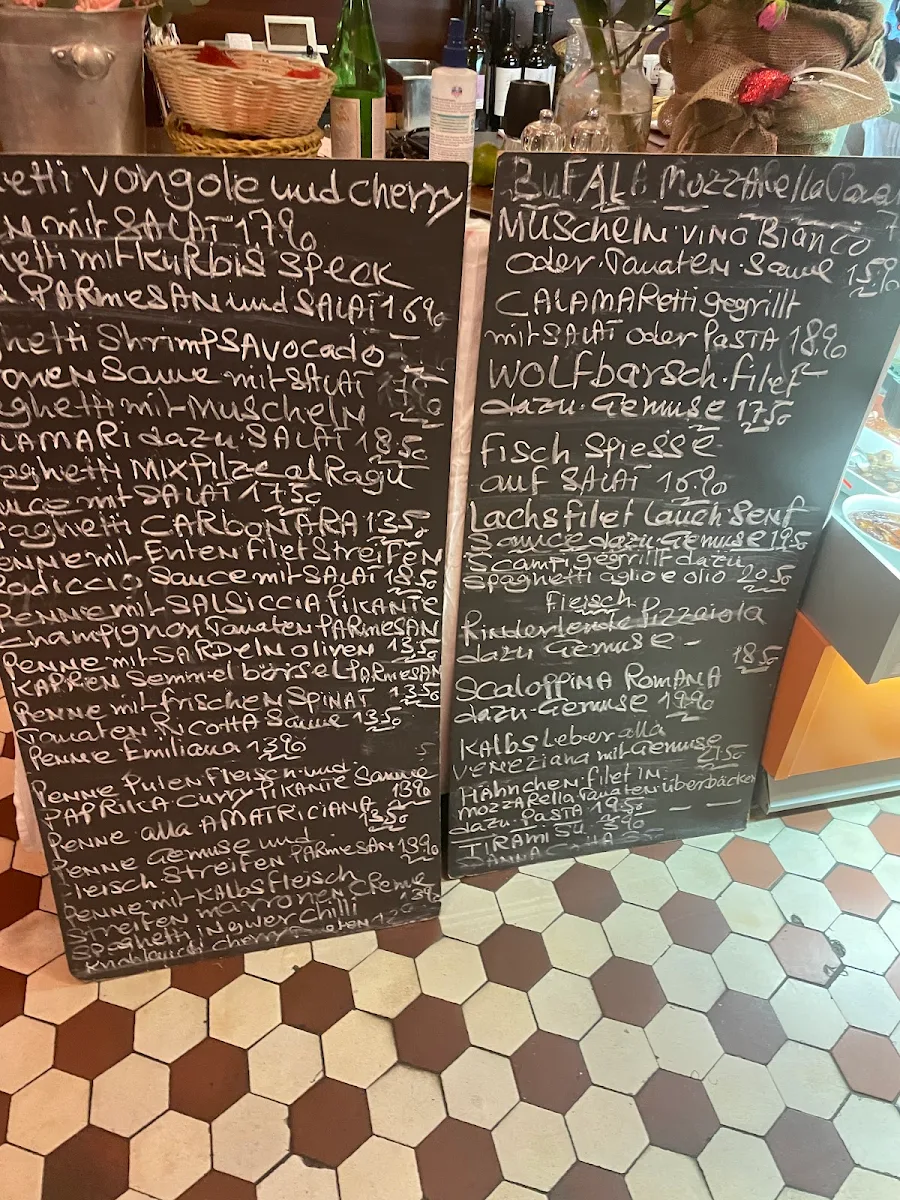 etti vongole und cherry
mit SALAT 17.90
etti mit Kürbis Speck
PARMESAN und SALAT 16.90
hetti Shrimps Avocado
onen Sauce mit SALAT
ghetti mit Muscheln
LAMARi dazu SALAT 18.50
aghetti Mix Pilze al Ragu
uce mit SALAT 17.50
paghetti CARBONARA 13.50
enne mit Enten filet Streifen
adiccio Sauce mit SALAT 18.50
Penne mit SALSiCCiA Pikante
Champignon Tomaten PARMESAN
Penne mit SARDELN oliven 13.50
KAPPEN Semmel börsel PARMESAN
Penne mit frischen SPiNAT 13.50
Tomaten RiCOTTA Sauce 13.50
Penne Emiliana 13.90
Penne Puten fleisch und
PAPRiKA Curry Pikante Sauce 13.90
Penne alla AMATRiCiANA 13.50
Penne Gemüse und
Fleisch Streifen PARMESAN 13.90
Penne mit Kalbsfleisch
Streifen marronen Creme 13.90
Spaghetti ingwer Chilli
Knoblauch Cherry
BUFALA Mozzarella
MUSCHELN VINO Bianco
oder Tomaten Sauce 15.90
CALAMARetti gegrillt
mit SALAT oder PASTA 18.90
Wolfbarsch filet
dazu Gemüse 17.50
Fisch SPiESSe
auf SALAT 16.90
Lachsfilet Lauch Senf
Sauce dazu Gemüse 19.50
Scampi gegrillt dazu
spaghetti aglio e olio 20.50
Fleisch
Rinderlende Pizzaiola
dazu Gemüse - 18.50
Scaloppina Romana
dazu Gemüse 19.90
Kalbsleber alla
Veneziana mit Gemüse 21.50
Hähnchen filet in
mozzarella Tomaten überbacken
dazu PASTA 19.50
TiRAMi SU 5.90